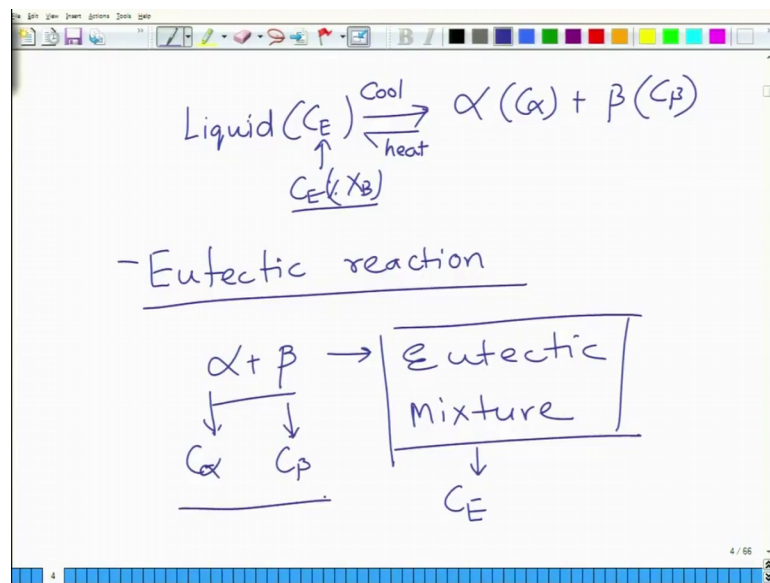 File Edit View Insert Actions Tools Help
B I
Liquid (C_E) Cool ⇌ heat α (Cα) + β (Cβ)
↑
C_E (% X_B)
- Eutectic reaction
α + β → Eutectic
Mixture
↓ ↓ ↓
Cα Cβ C_E
4 / 66
4